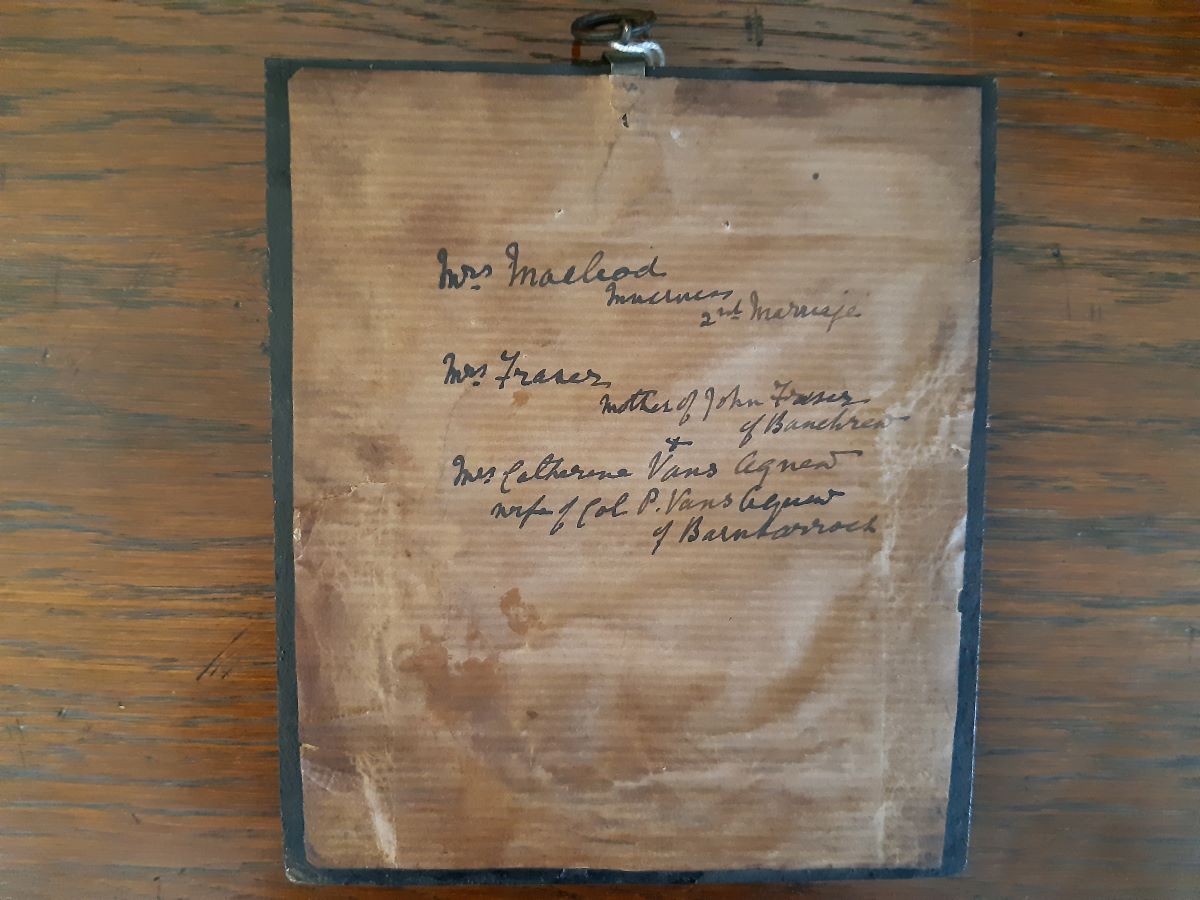 Mrs Macleod
Inverness
2nd Marriage
Mrs Fraser
mother of John Fraser
of Bunchrew
+
Mrs Catherine Vans Agnew
wife of Col P. Vans Agnew
of Barnbarroch